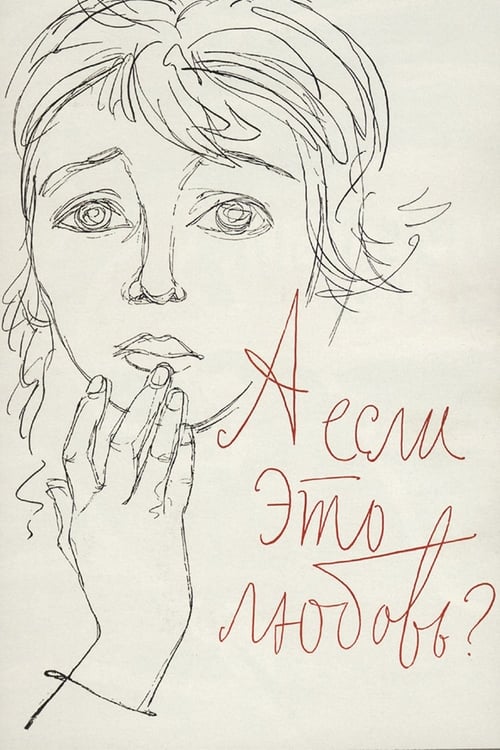 А если
это
любовь?